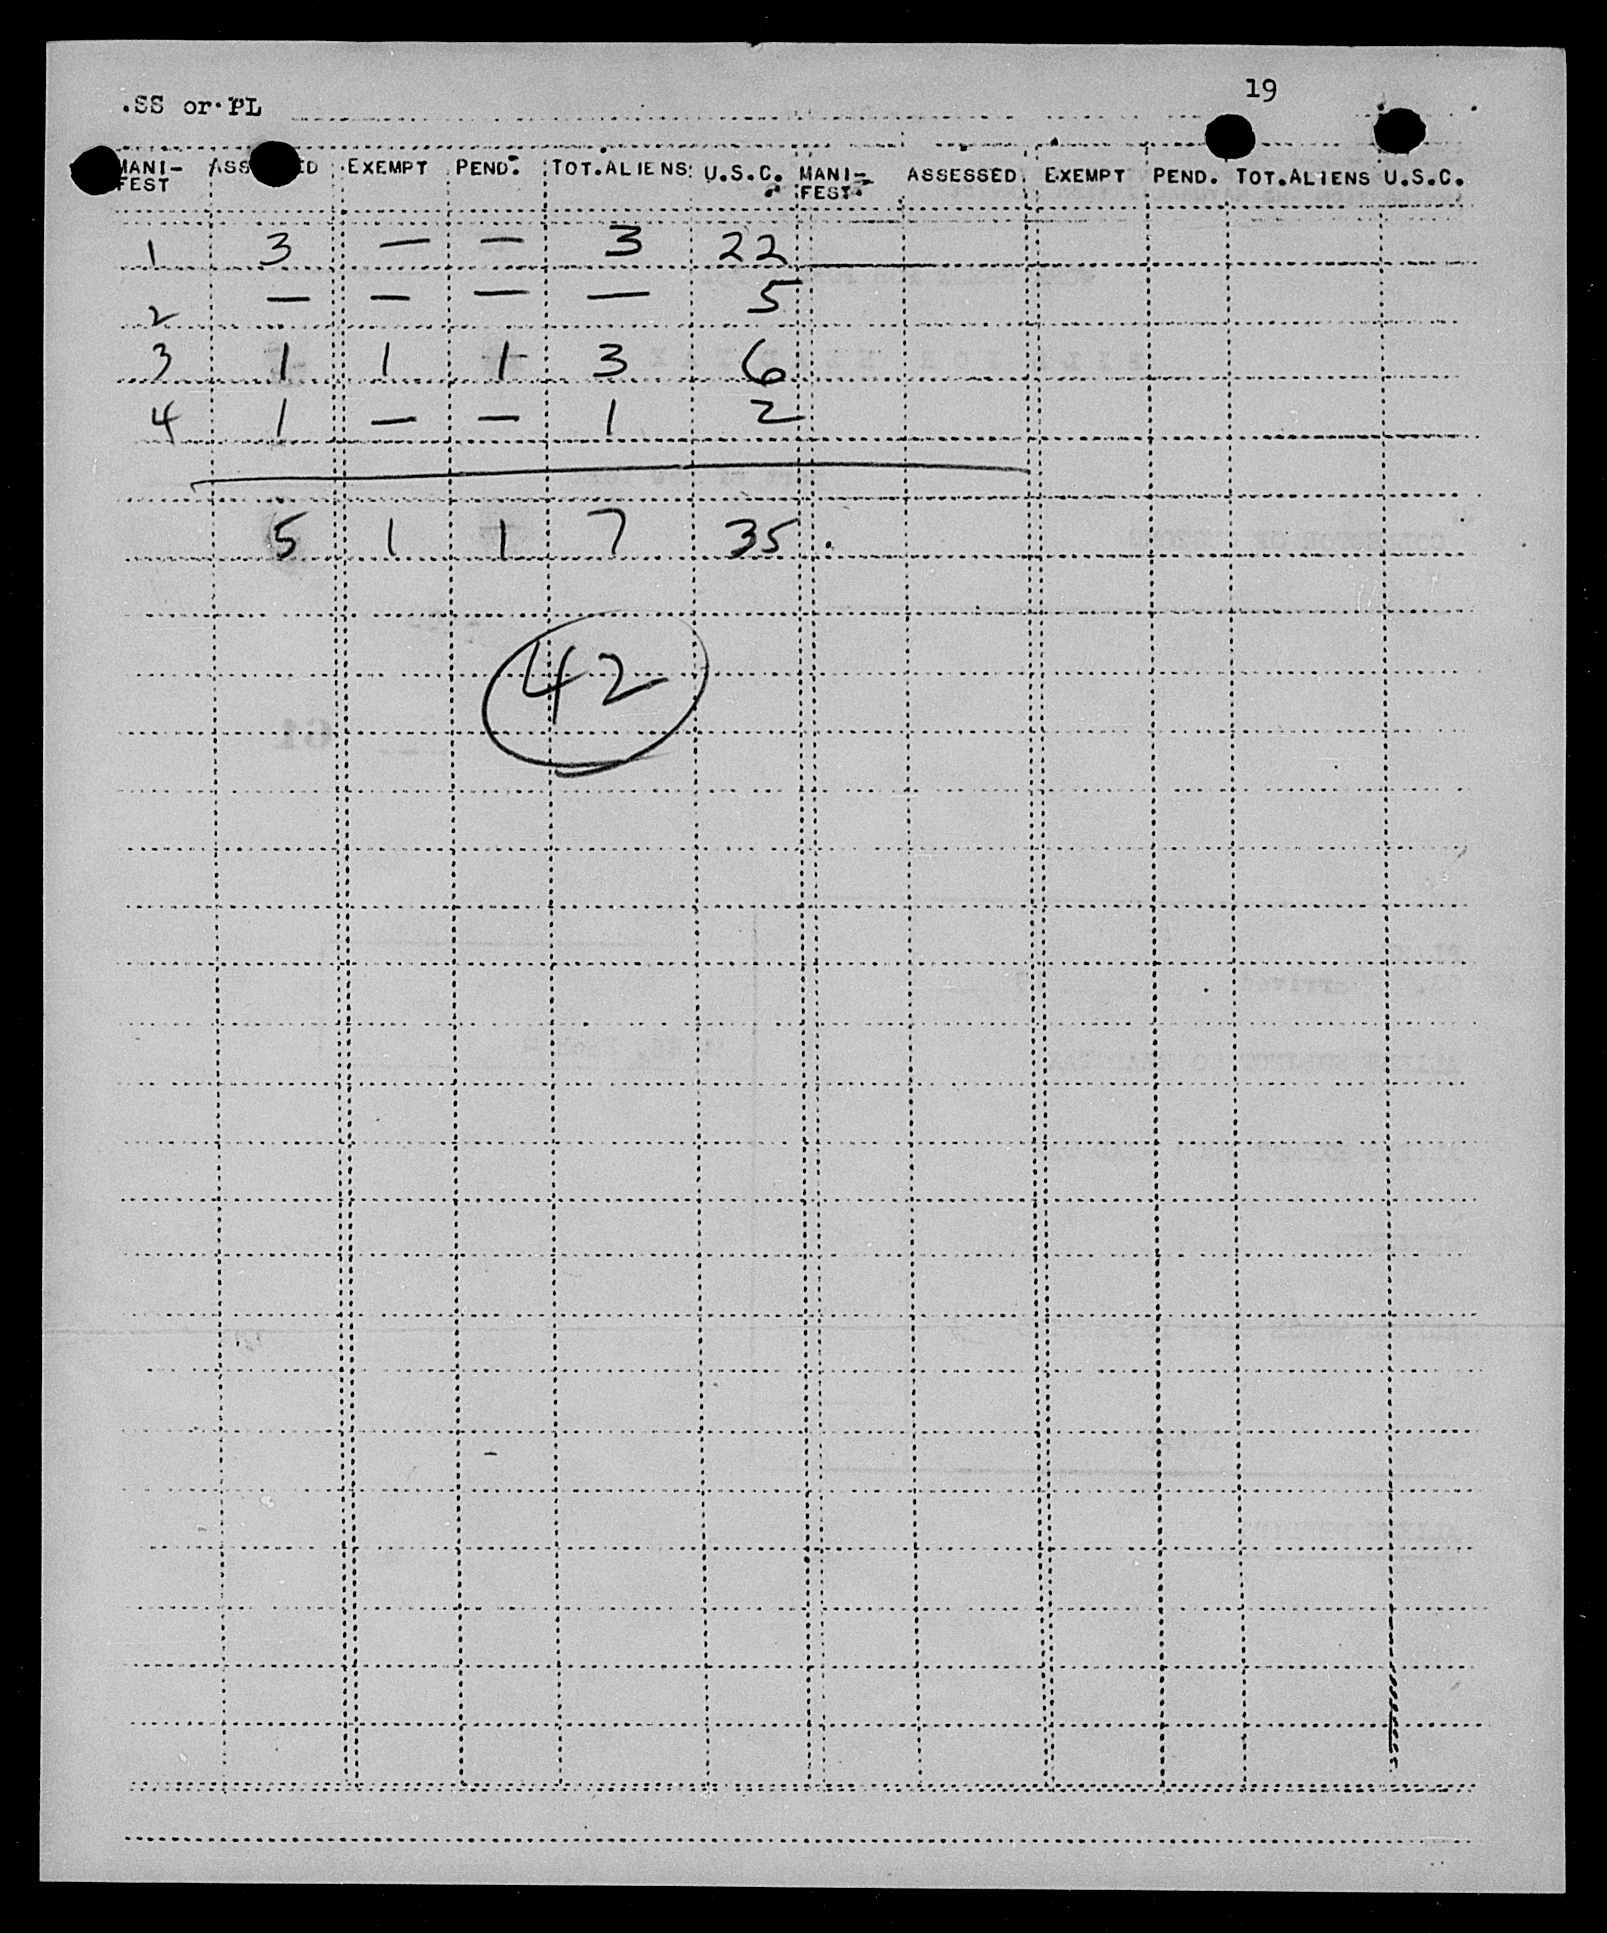 19
.SS or PL
MANI-FEST ASS ED EXEMPT PEND. TOT.ALIENS U.S.C. MANI-FEST ASSESSED EXEMPT PEND. TOT.ALIENS U.S.C.
1 3 — — 3 22
2 — — — — 5
3 1 1 1 3 6
4 1 — — 1 2
5 1 1 7 35
42